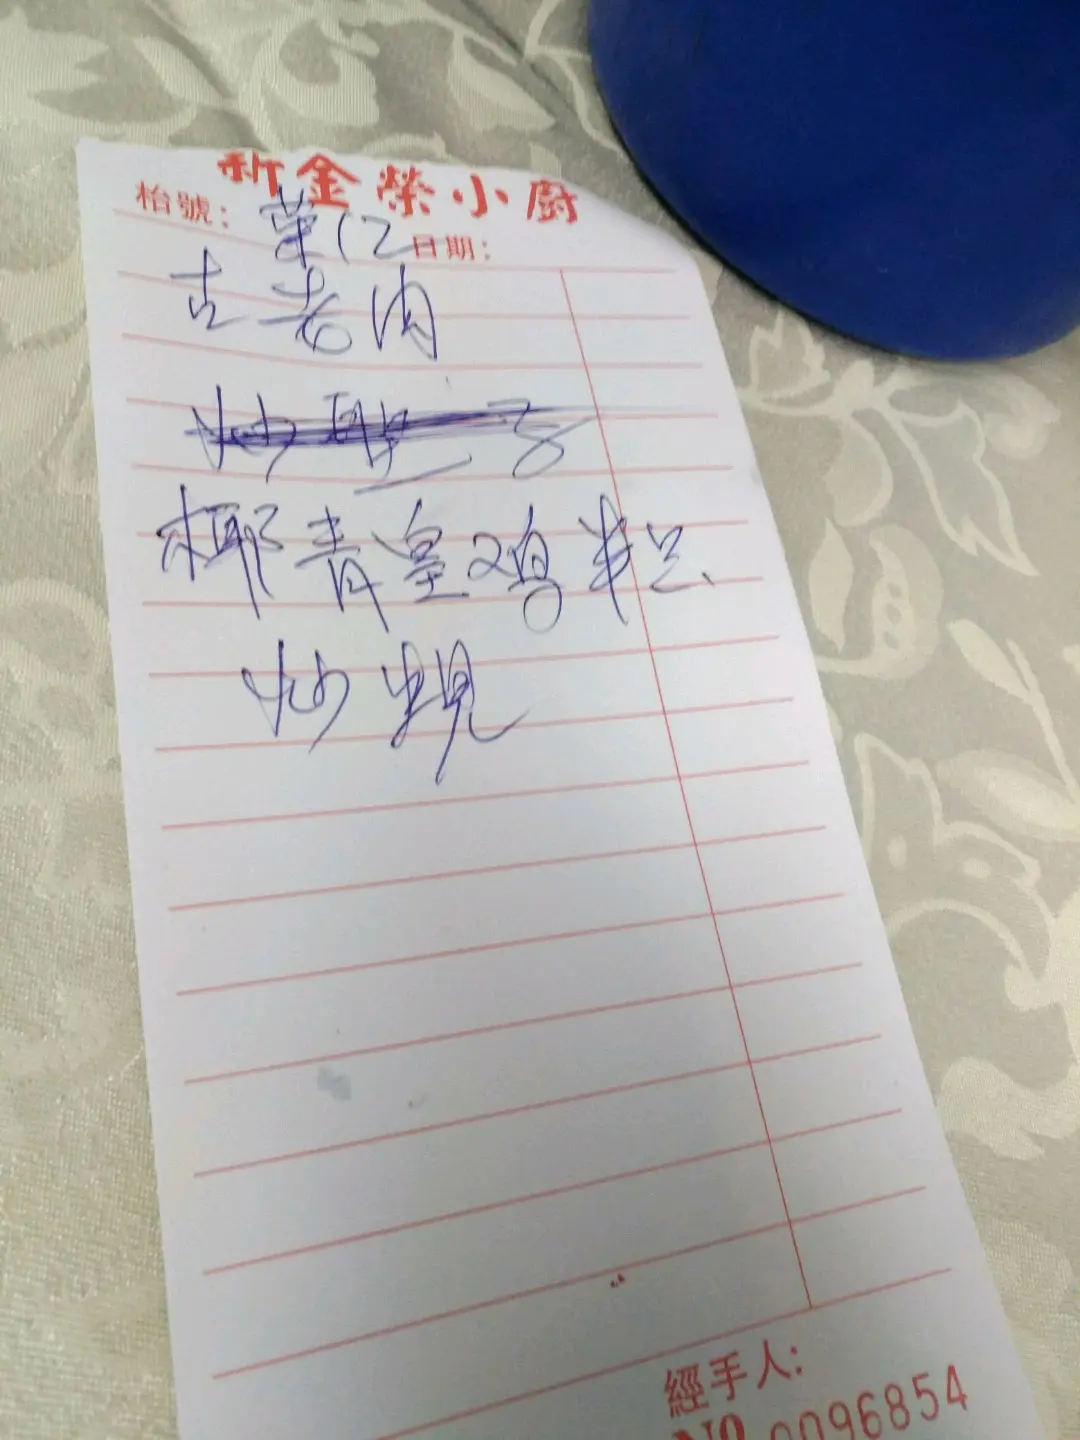 新金榮小厨
枱號： 菜12 日期：
古老肉
炒聖子
椰青皇鸡半只
炒蚬
經手人：
№ 0096854